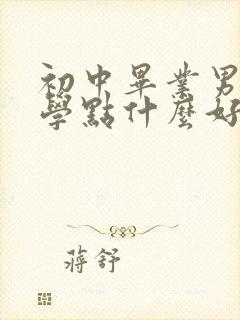 初中畢業男
學點什麼好
蔣舒